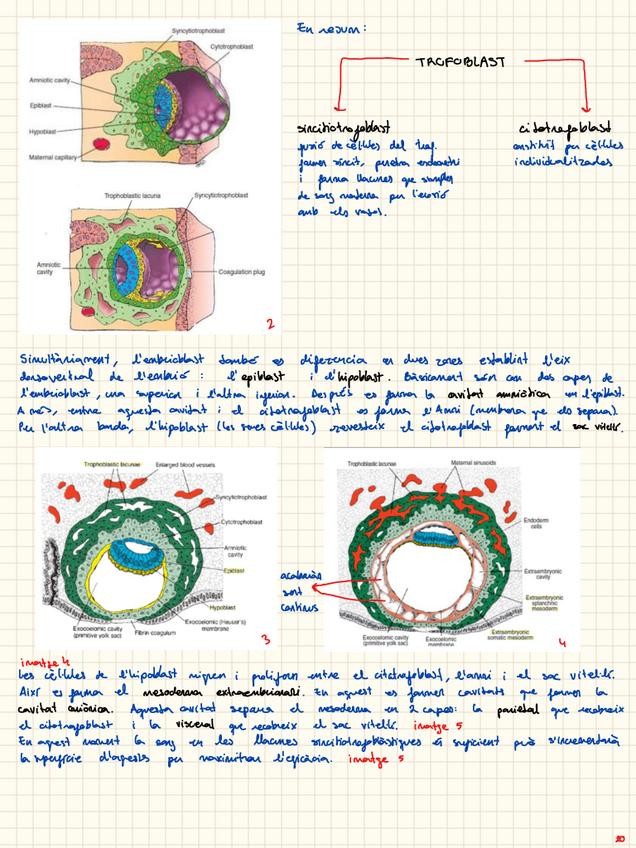 Syncytiotrophoblast
Cytotrophoblast
Amniotic cavity
Epiblast
Hypoblast
Maternal capillary
Trophoblastic lacuna
Syncytiotrophoblast
Amniotic cavity
Coagulation plug
2
En resum:
TROFOBLAST
sinciciotrofoblast
fusió de cèl·lules del trof.
formen sincici, penetra endometri
i forma llacunes que s'omplen
de sang materna per l'erosió
amb els vasos.
citotrofoblast
constituït per cèl·lules
individualitzades
Simultàniament, l'embrioblast també es diferencia en dues zones establint l'eix
dorsoventral de l'embrió: l'epiblast i l'hipoblast. Bàsicament són com dos capes de
l'embrioblast, una superior i l'altra inferior. Després es forma la cavitat amniòtica en l'epiblast.
A més, entre aquesta cavitat i el citotrofoblast es forma l'Amni (membrana que els separa).
Per l'altra banda, l'hipoblast (les seves cèl·lules) revesteix el citotrofoblast formant el sac vitel·lí.
Trophoblastic lacunae
Enlarged blood vessels
Syncytiotrophoblast
Cytotrophoblast
Amniotic cavity
Epiblast
Hypoblast
Exocoelomic cavity (primitive yolk sac)
Fibrin coagulum
Exocoelomic (Heuser's) membrane
3
acabaran
sent
contínues
Trophoblastic lacunae
Maternal sinusoids
Endoderm cells
Extraembryonic cavity
Extraembryonic splanchnic mesoderm
Extraembryonic somatic mesoderm
Exocoelomic cavity (primitive yolk sac)
Exocoelomic membrane
4
imatge 4
Les cèl·lules de l'hipoblast migren i proliferen entre el citotrofoblast, l'amni i el sac vitel·lí.
Així es forma el mesoderma extraembrionari. En aquest es formen cavitats que formen la
cavitat coriònica. Aquesta cavitat separa el mesoderma en 2 capes: la parietal que recobreix
el citotrofoblast i la visceral que recobreix el sac vitel·lí. imatge 5
En aquest moment la sang en les llacunes sinciciotrofoblàstiques és suficient però s'incrementarà
la superfície d'aquestes per maximitzar l'eficàcia. imatge 5
20